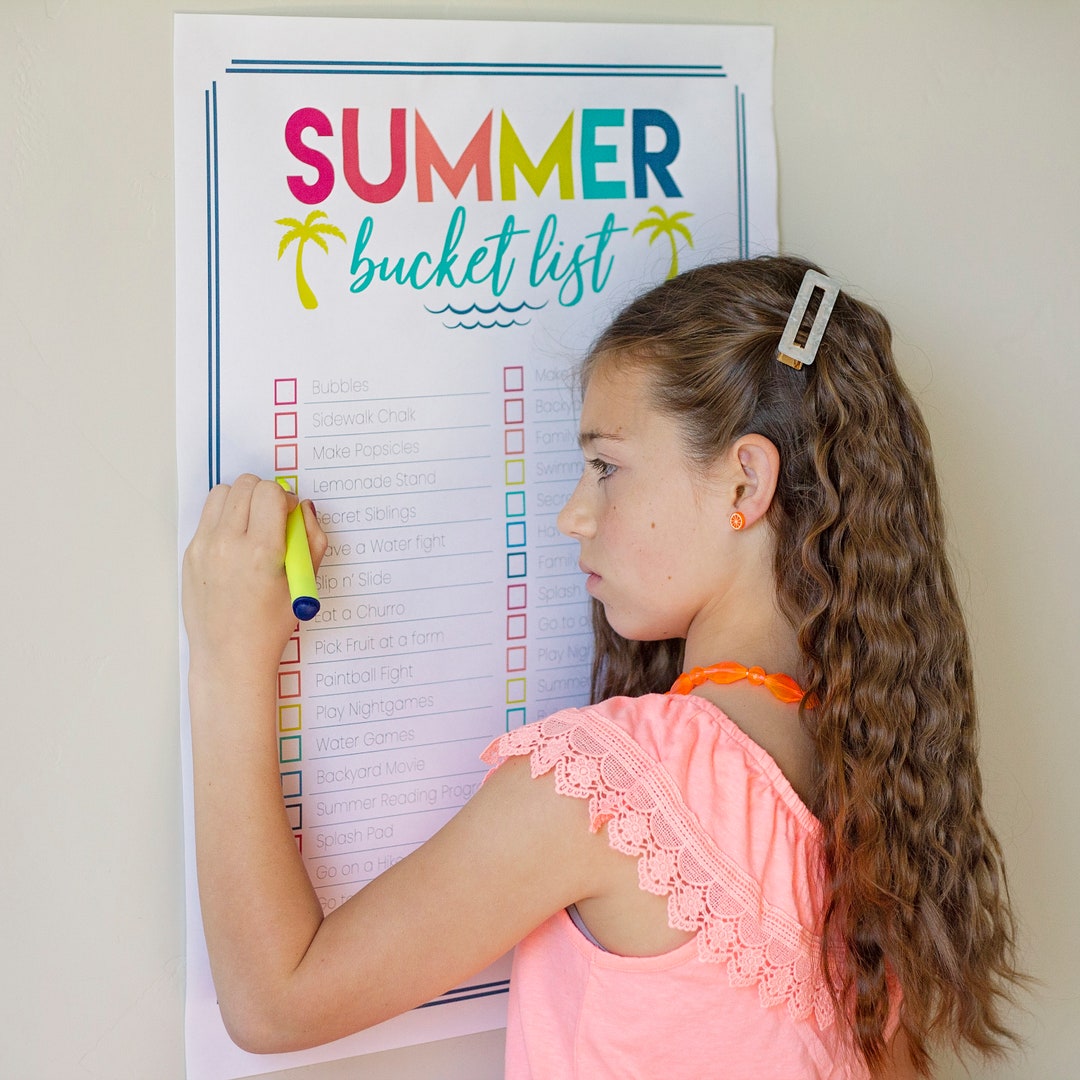 SUMMER
bucket list
Bubbles
Sidewalk Chalk
Make Popsicles
Lemonade Stand
Secret Siblings
ave a Water fight
Slip n' Slide
Eat a Churro
Pick Fruit at a farm
Paintball Fight
Play Nightgames
Water Games
Backyard Movie
Summer Reading Progr
Splash Pad
Go on a Hike
Go to
Make
Backya
Family
Swimm
Secre
Hav
Family
Splash
Go to
Play Nigh
Summer